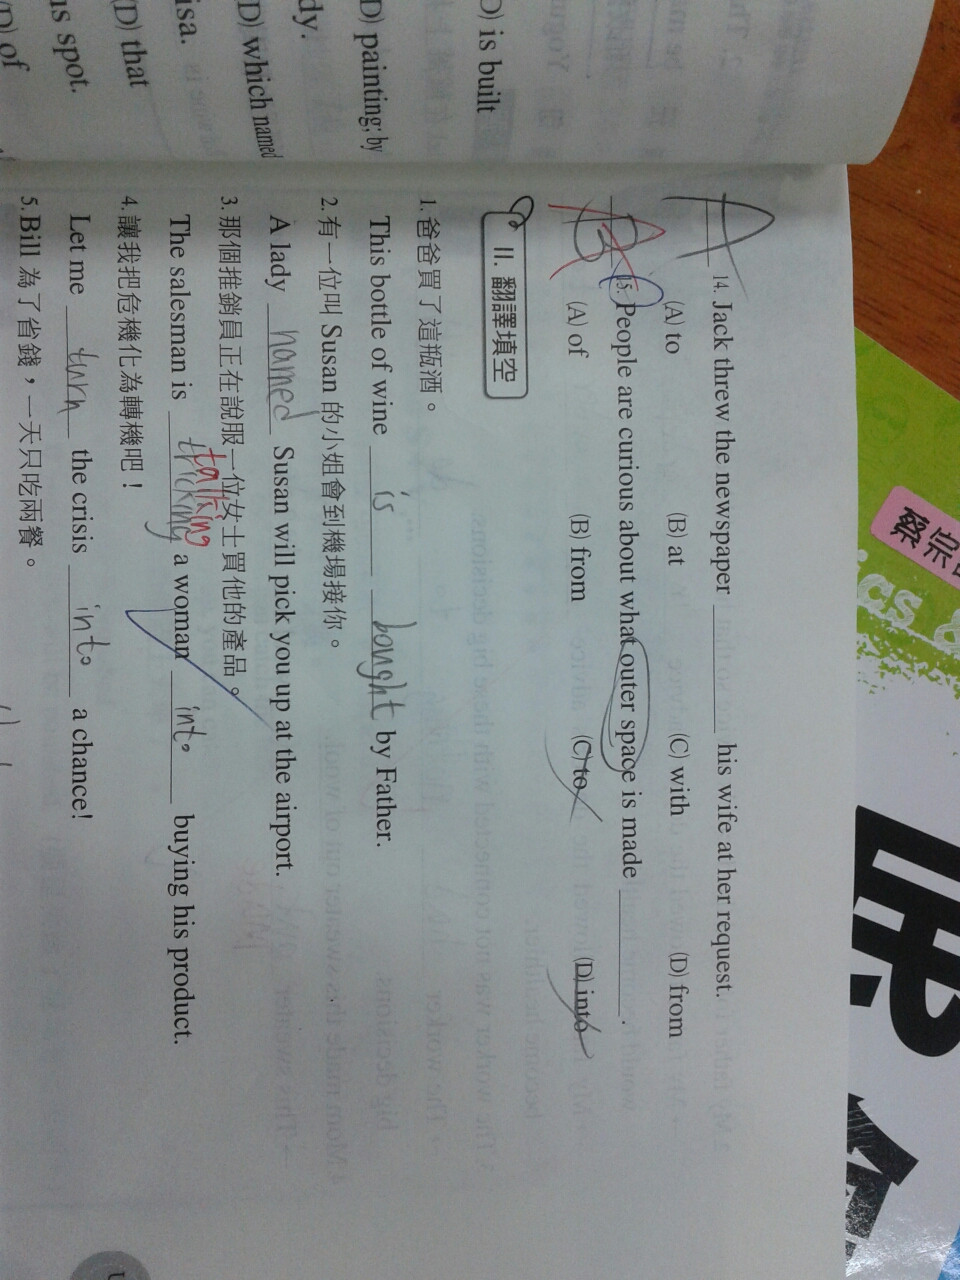 (D) is built
(D) painting; by
dy.
(D) which named
isa.
(D) that
us spot.
(D) of
A 14. Jack threw the newspaper ______ his wife at her request.
(A) to (B) at (C) with (D) from
A 15. People are curious about what outer space is made ______.
(A) of (B) from (C) to (D) into
II. 翻譯填空
1. 爸爸買了這瓶酒。
This bottle of wine is bought by Father.
2. 有一位叫 Susan 的小姐會到機場接你。
A lady named Susan will pick you up at the airport.
3. 那個推銷員正在說服一位女士買他的產品。
talking
The salesman is a woman into buying his product.
4. 讓我把危機化為轉機吧！
Let me turn the crisis into a chance!
5. Bill 為了省錢，一天只吃兩餐。
蔡宗
cs &